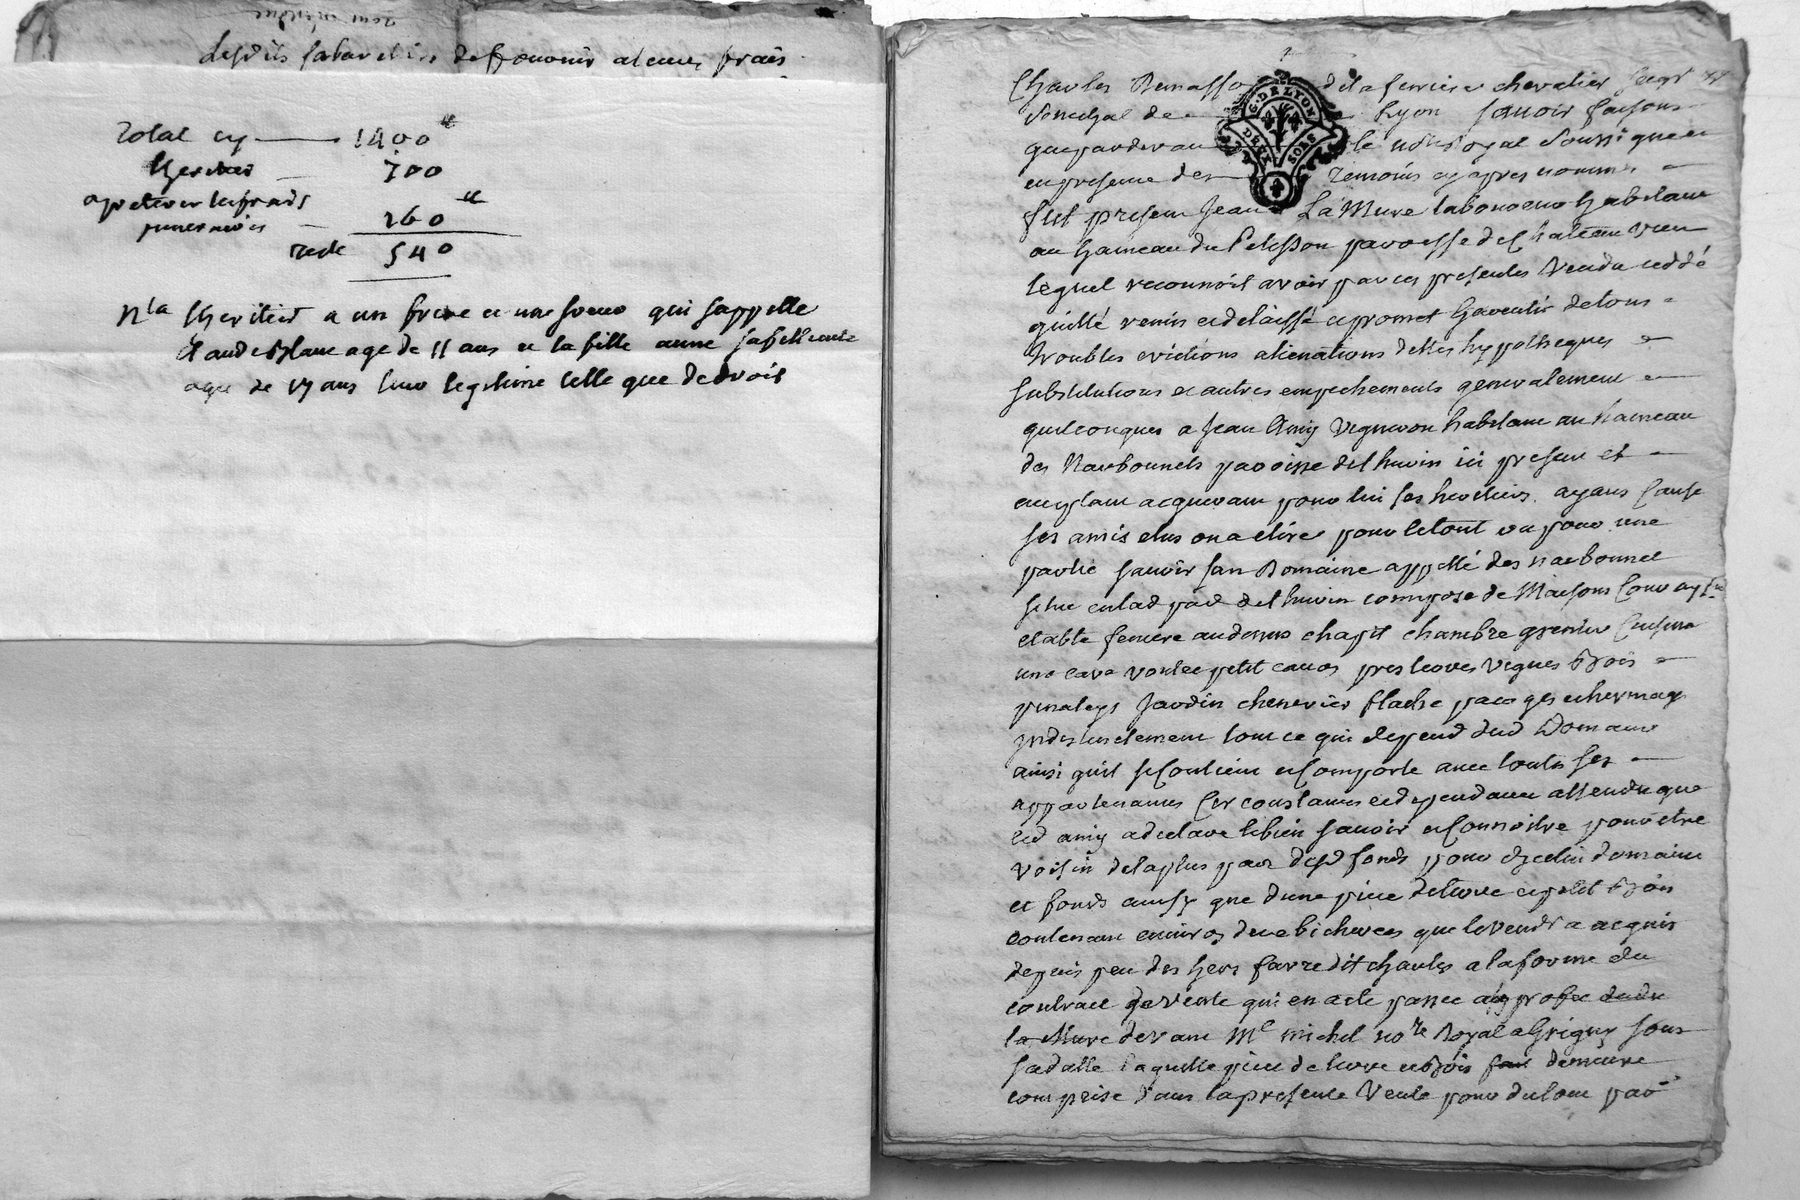 lesdits de pouvoir a leurs frais
Total cy 1400 tt
heritier 700
a prelever les frais
funeraires 160 tt
reste 540
Nta lheritier a un frere et une soeur qui sappelle
Claude age de 11 ans et la fille
agee de ans leur legitime telle que de droit
Charles Masso de la ferriere chevalier seigr
Senechal de Lyon savoir faisons
que pardevant le notre Royal Soussigné
en presence des temoins cy apres nommés
fut present Jean La Mure laboureur habitant
au hameau du Pelisson paroisse de Chateauvieux
lequel reconnoit avoir par ces presentes Vendu ceddé
quitté remis et delaissé et promet garentir de tous
troubles evictions alienations dettes hypotheques
substitutions et autres empechements generalement
quelconques a Jean Amy Vigneron habitant au hameau
des Narbonnets paroisse de thurin ici present et
acceptant acquerant pour lui ses heritiers ayans Cause
ses amis elus ou a elire pour le tout ou pour une
partie savoir son Domaine appellé des narbonnet
situe en lad par de thurin compose de Maisons Cour
etable feniere au dessus chapit chambre grenier Cuisine
une cave voutee petit cuvier pres terres vignes bois
pinaleys Jardin chenevier flache pacages et hermages
indistinctement tout ce qui depend dud Domaine
ainsi quil se Contient et Comporte avec toutes ses
appartenances Circonstances et dependances attendu que
led amy a declare le bien savoir et Connoitre pour etre
voisin de la plus part desd fonds pour dicelui domaine
et fonds aussy que dune piece de terre et petit bois
contenant environ deux bicherees que le vendr a acquis
depuis peu des hers favre dit charles a la forme du
contract de vente qui en a ete passé
la Mure devant Me michel nore Royal a Grigny sous
sa datte laquelle piece de terre et bois demeure
comprise dans la presente Vente pour du tout par
C. DE LYON
DEUX SOLS